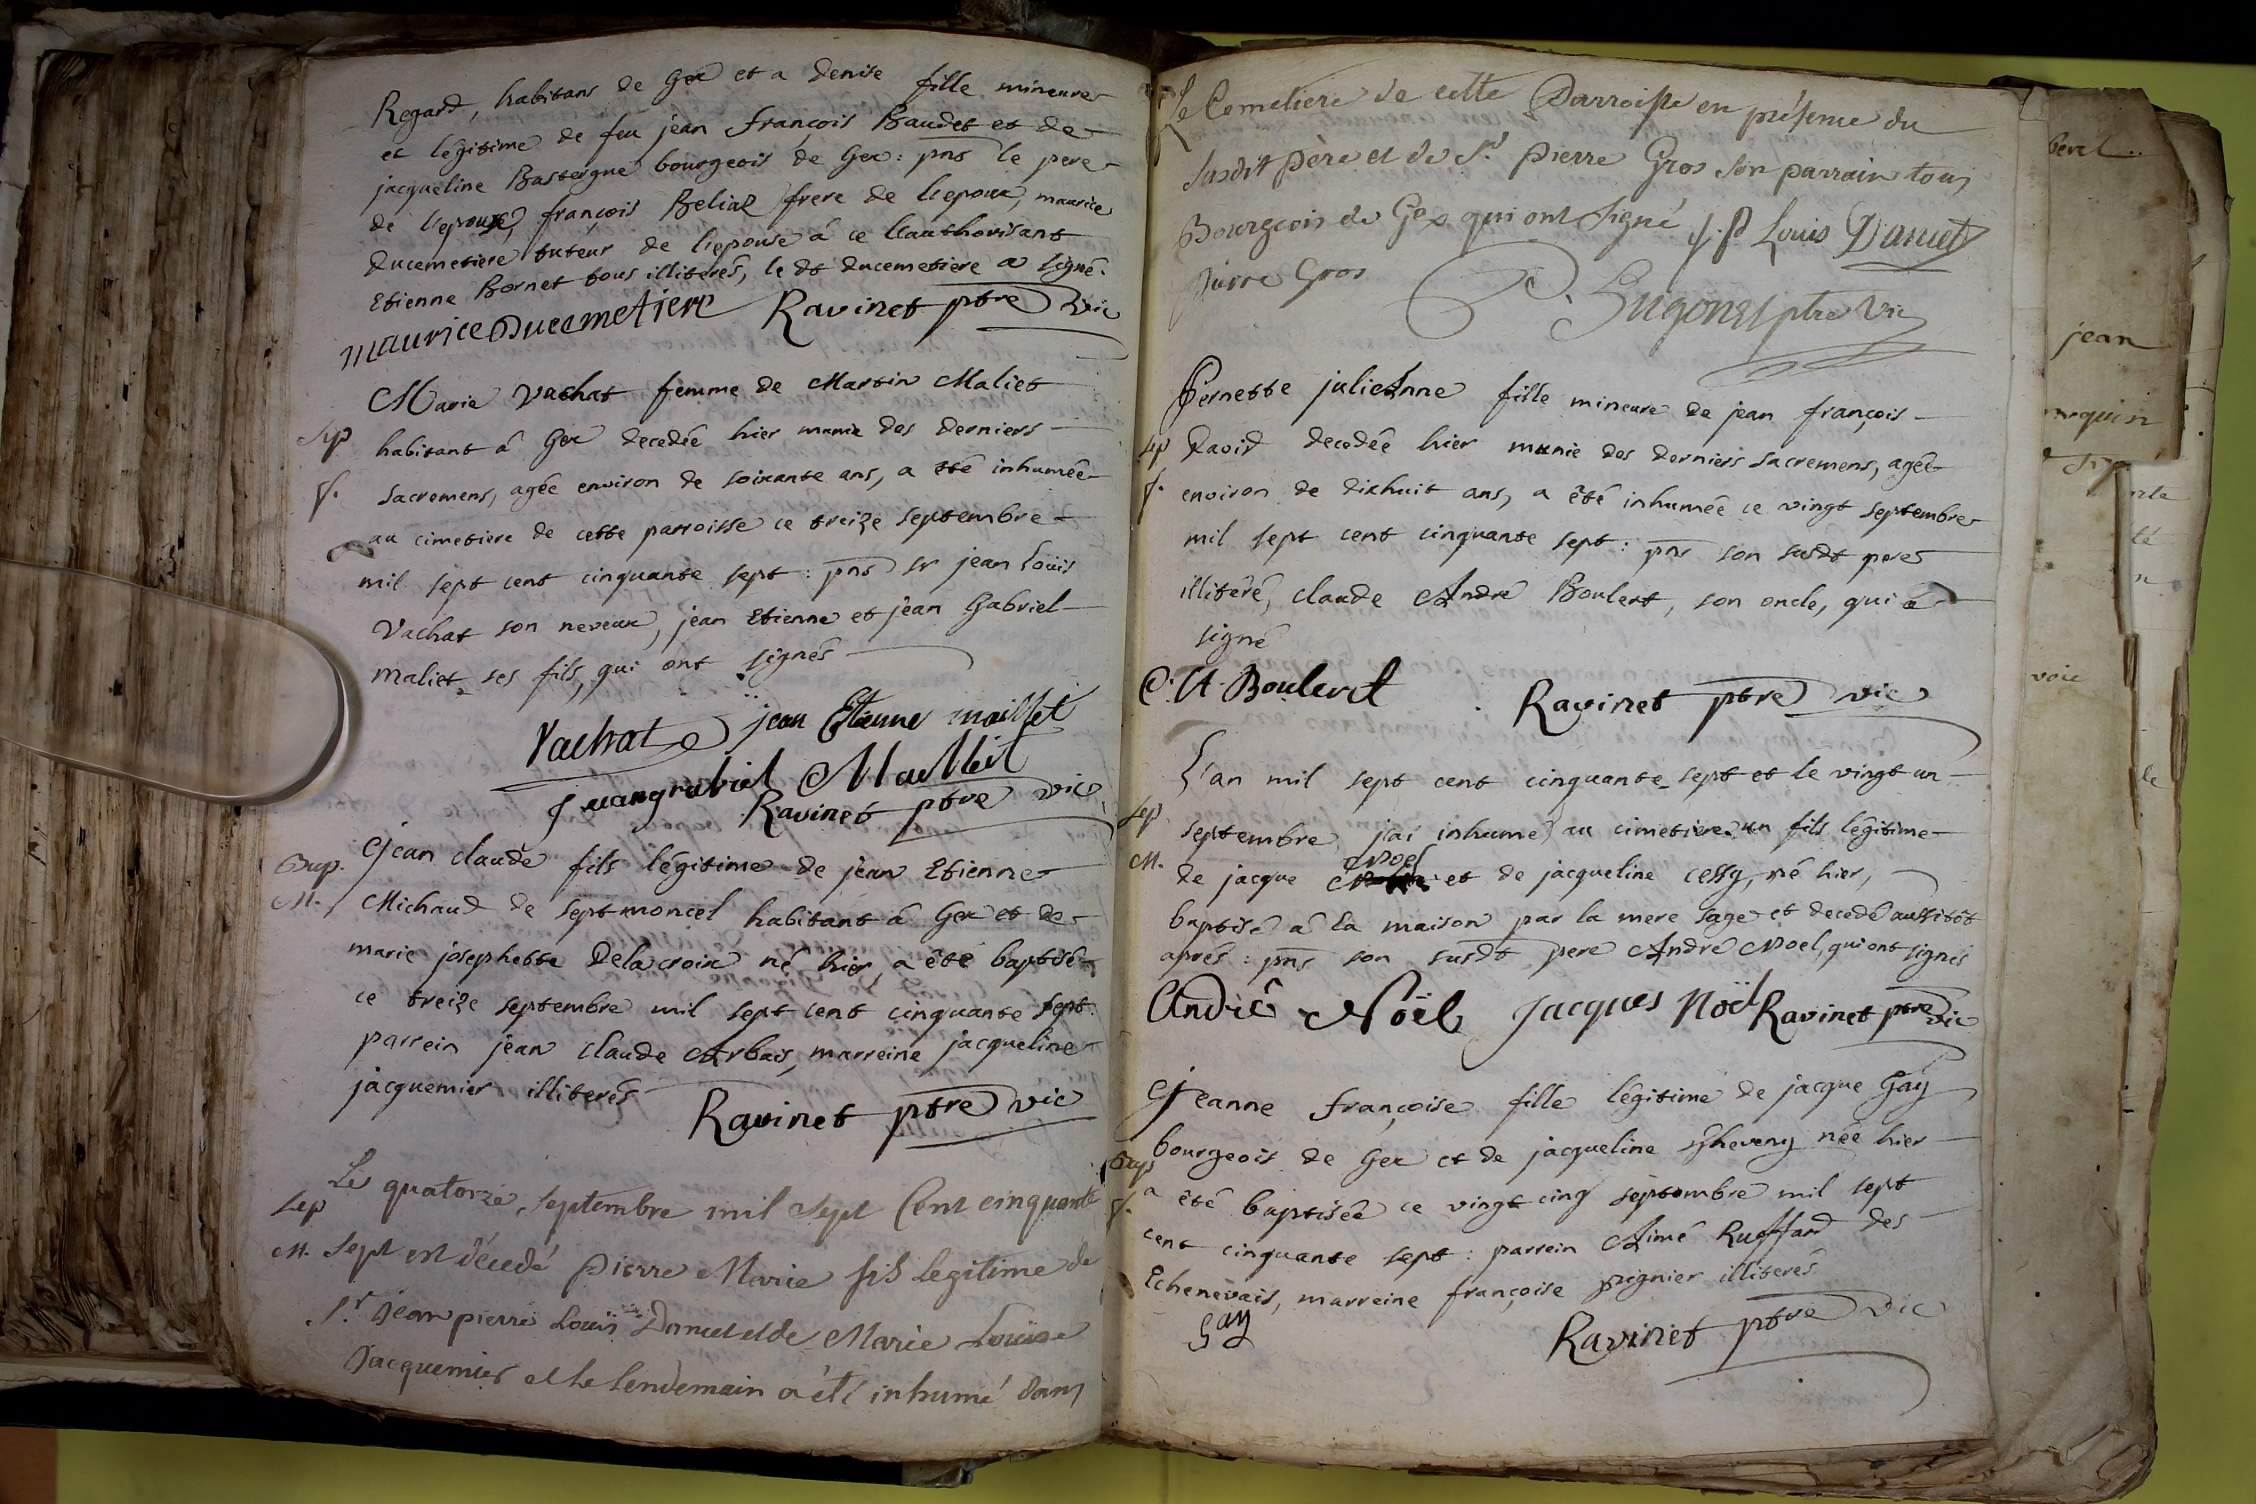 Regard, habitans de Gex et a denise fille mineure
et legitime de feu jean françois Baudet et de
jacqueline Bastergue bourgeois de Gex : pns le pere
de l'epouse, françois Beliaz frere de l'epoux, maurice
ducemetiere tuteur de l'epouse â ce l'authorisant
Etienne Bornet tous illiterés, le dt ducemetiere a signé.
maurice Ducemetiere Ravinet ptre vic
Marie Vachat femme de Martin Maliet
Sep habitant â Gex decedée hier munie des derniers
f. sacremens, agée environ de soixante ans, a êté inhumée
au cimetiere de cette parroisse ce treize septembre
mil sept cent cinquante sept : pns sr jean Louis
Vachat son neveux, jean Etienne et jean Gabriel
maliet ses fils, qui ont signés
Vachat jean Etienne maillet
Jeangrabiel Maillet
Ravinet ptre vic
Bap. jean claude fils légitime de jean Etienne
M. Michaud de septmoncel habitant â Gex et de
marie josephette Delacroix né hier, a êté baptisé
ce treize septembre mil sept cent cinquante sept :
parrein jean claude Arbais, marreine jacqueline
jacquemier illiterés Ravinet ptre vic
Le quatorze septembre mil sept Cent cinquante
Sep
M. Sept est décedé pierre Marie fils legitime de
Sr. jean pierre Louis Daniel et de Marie Louise
Jacquemier et le lendemain a été inhumé dans
Le Cemetiere de cette Parroisse en présence du
susdit père et de Sr. pierre Gros son parrain tous
Bourgeois de Gex qui ont signé J. P Louis Daniet
pierre Gros
P. Gugonet ptre Vic
Pernette julienne fille mineure de jean françois
Sep David decedée hier munie des derniers sacremens, agée
f. environ de dixhuit ans, a êté inhumée ce vingt septembre
mil sept cent cinquante sept : pns son susdt pere
illiteré, claude Andre Boulert, son oncle, qui a
signé
C. A. Boulert Ravinet ptre vic
L'an mil sept cent cinquante sept et le vingt un
Sep septembre j'ai inhumé au cimetiere un fils légitime
M. de jacque Noel et de jacqueline cessy, né hier,
baptisé â la maison par la mere sage et decedé aussitôt
aprés : pns son susdt pere Andre Noel, qui ont signés
André Noël Jacques Noël Ravinet ptre vic
Jeanne françoise fille légitime de jacque Gay
bourgeois de Gex et de jacqueline née hier
Bap
f. a êté baptisée ce vingt cinq septembre mil sept
cent cinquante sept : parrein Aimé Ruffard des
Echenevais, marreine françoise pignier illiterés
Gay Ravinet ptre vic
jean
voie